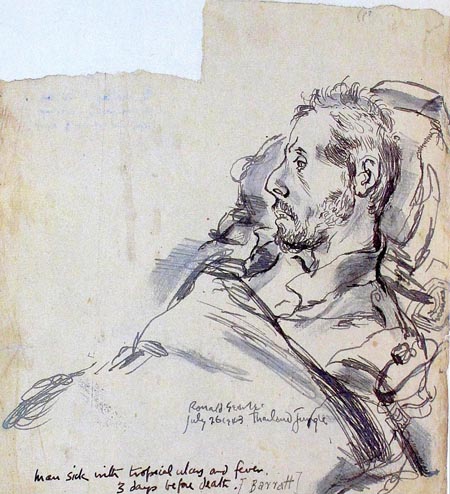 Ronald Searle
July 26 1943 Thailand Jungle
Man sick with tropical ulcers and fever.
3 days before death. [J Barratt]